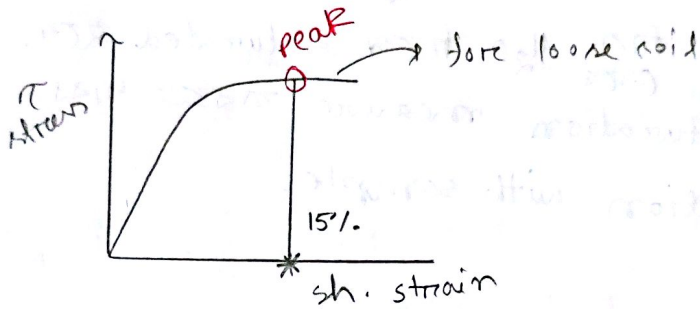 peak
fore loose soil
τ
stress
15%.
sh. strain